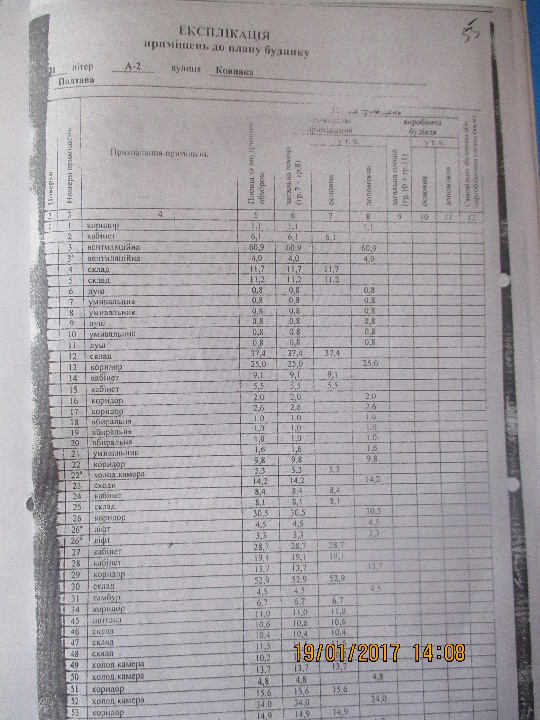 55
ЕКСПЛІКАЦІЯ
приміщень до плану будинку
21 літер А-2 вулиця Ковпака
Полтава
Поверхи
Номери приміщень
Призначення приміщень
Площа за внутрішнім обміром
загальна площа (гр.7 + гр.8)
приміщення
у т. ч.
основна
допоміжна
виробнича будівля
у т. ч.
загальна площа (гр.10 + гр.11)
основна
допоміжна
3 4 5 6 7 8 9 10 11 12
1 1 коридор 1,1 1,1 1,1
2 кабінет 6,1 6,1 6,1
3 вентиляційна 60,9 60,9 60,9
3' вентиляційна 4,0 4,0 4,0
4 склад 11,7 11,7 11,7
5 склад 11,2 11,2 11,2
6 душ 0,8 0,8 0,8
7 умивальник 0,8 0,8 0,8
8 умивальник 0,8 0,8 0,8
9 душ 0,8 0,8 0,8
10 умивальник 0,8 0,8 0,8
11 душ 0,8 0,8 0,8
12 склад 37,4 37,4 37,4
13 коридор 25,0 25,0 25,0
14 кабінет 9,1 9,1 9,1
15 кабінет 5,5 5,5 5,5
16 коридор 2,0 2,0 2,0
17 коридор 2,6 2,6 2,6
18 вбиральня 1,0 1,0 1,0
19 вбиральня 1,0 1,0 1,0
20 вбиральня 1,0 1,0 1,0
21 умивальник 1,6 1,6 1,6
22 коридор 9,8 9,8 9,8
22а холод.камера 5,3 5,3 5,3
23 сходи 14,2 14,2 14,2
24 кабінет 8,4 8,4 8,4
25 склад 8,1 8,1 8,1
26 коридор 30,5 30,5 30,5
26а ліфт 4,5 4,5 4,5
ліфт 3,3 3,3 3,3
27 кабінет 28,7 28,7 28,7
28 кабінет 19,1 19,1 19,1
29 коридор 13,7 13,7 13,7
30 склад 52,9 52,9 52,9
31 тамбур 4,5 4,5 4,5
34 коридор 6,7 6,7 6,7
45 11,0 11,0 11,0
46 склад 10,6 10,6 10,6
47 склад 10,4 10,4 10,4
48 склад 11,5
49 холод.камера 10,2
50 холод.камера 13,7 13,7 13,7
51 коридор 4,8 4,8 4,8
52 холод.камера 15,6 15,6 15,6
53 коридор 34,0 34,0 34,0
14,9 14,9 14,9
19/01/2017 14:08